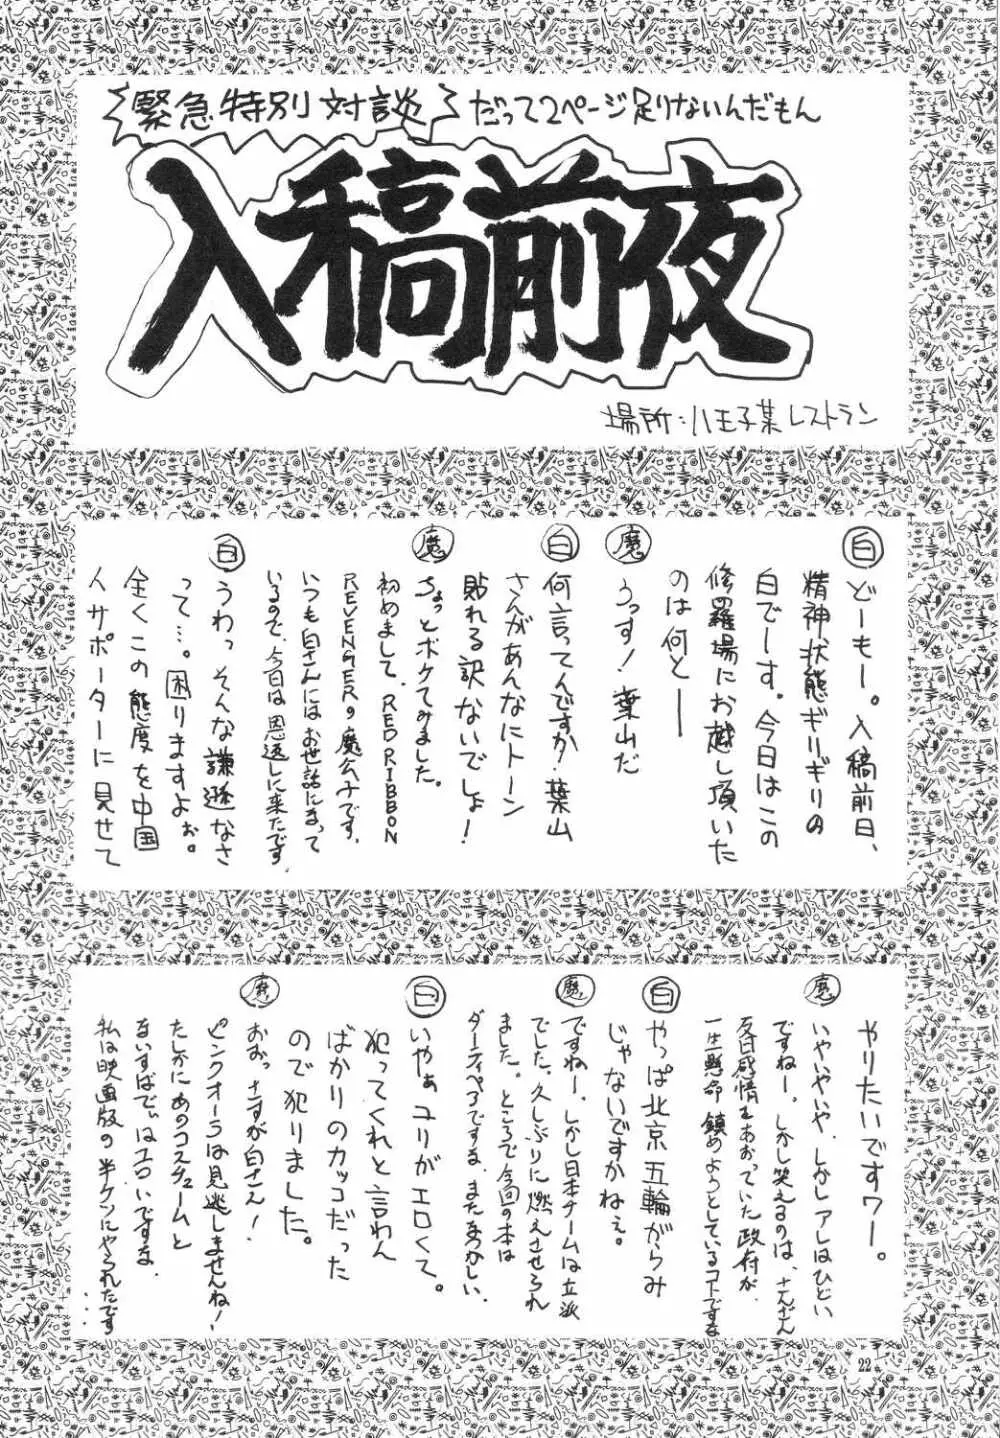 緊急特別対談 だって2ページ足りないんだもん
入稿前夜
場所:八王子某レストラン
白 どーもー。入稿前日、
精神状態ギリギリの
白でーす。今日はこの
修羅場にお越し頂いた
のは何と──
魔 うっす!葉山だ
白 何言ってんですか!葉山
さんがあんなにトーン
貼れる訳ないでしょ!
魔 ちょっとボケてみました。
初めまして、RED RIBBON
REVENGERの魔公子です。
いつも白さんにはお世話になって
いるので、今日は恩返しに来たです
白 うわっそんな謙遜なさ
って…。困りますよぉ。
全くこの態度を中国
人サポーターに見せて
やりたいですワー。
魔 いやいやいや、しかしアレはひどい
ですねー。しかし笑えるのは、さんざん
反日感情をあおっていた政府が
一生懸命鎮めようとしているコトですな
白 やっぱ北京五輪がらみ
じゃないですかねぇ。
魔 ですねー。しかし日本チームは立派
でした。久しぶりに燃えさせられ
ました。ところで今回の本は
ダーティペアですな。またなつかしい。
白 いやぁ、ユリがエロくて。
犯ってくれと言わん
ばかりのカッコだった
ので犯りました。
魔 おおっさすが白さん!
ピンクオーラは見逃しませんね!
たしかにあのコスチュームと
ないすばでぃはエロいですな
私は映画版の半ケツにやられたです
…
22